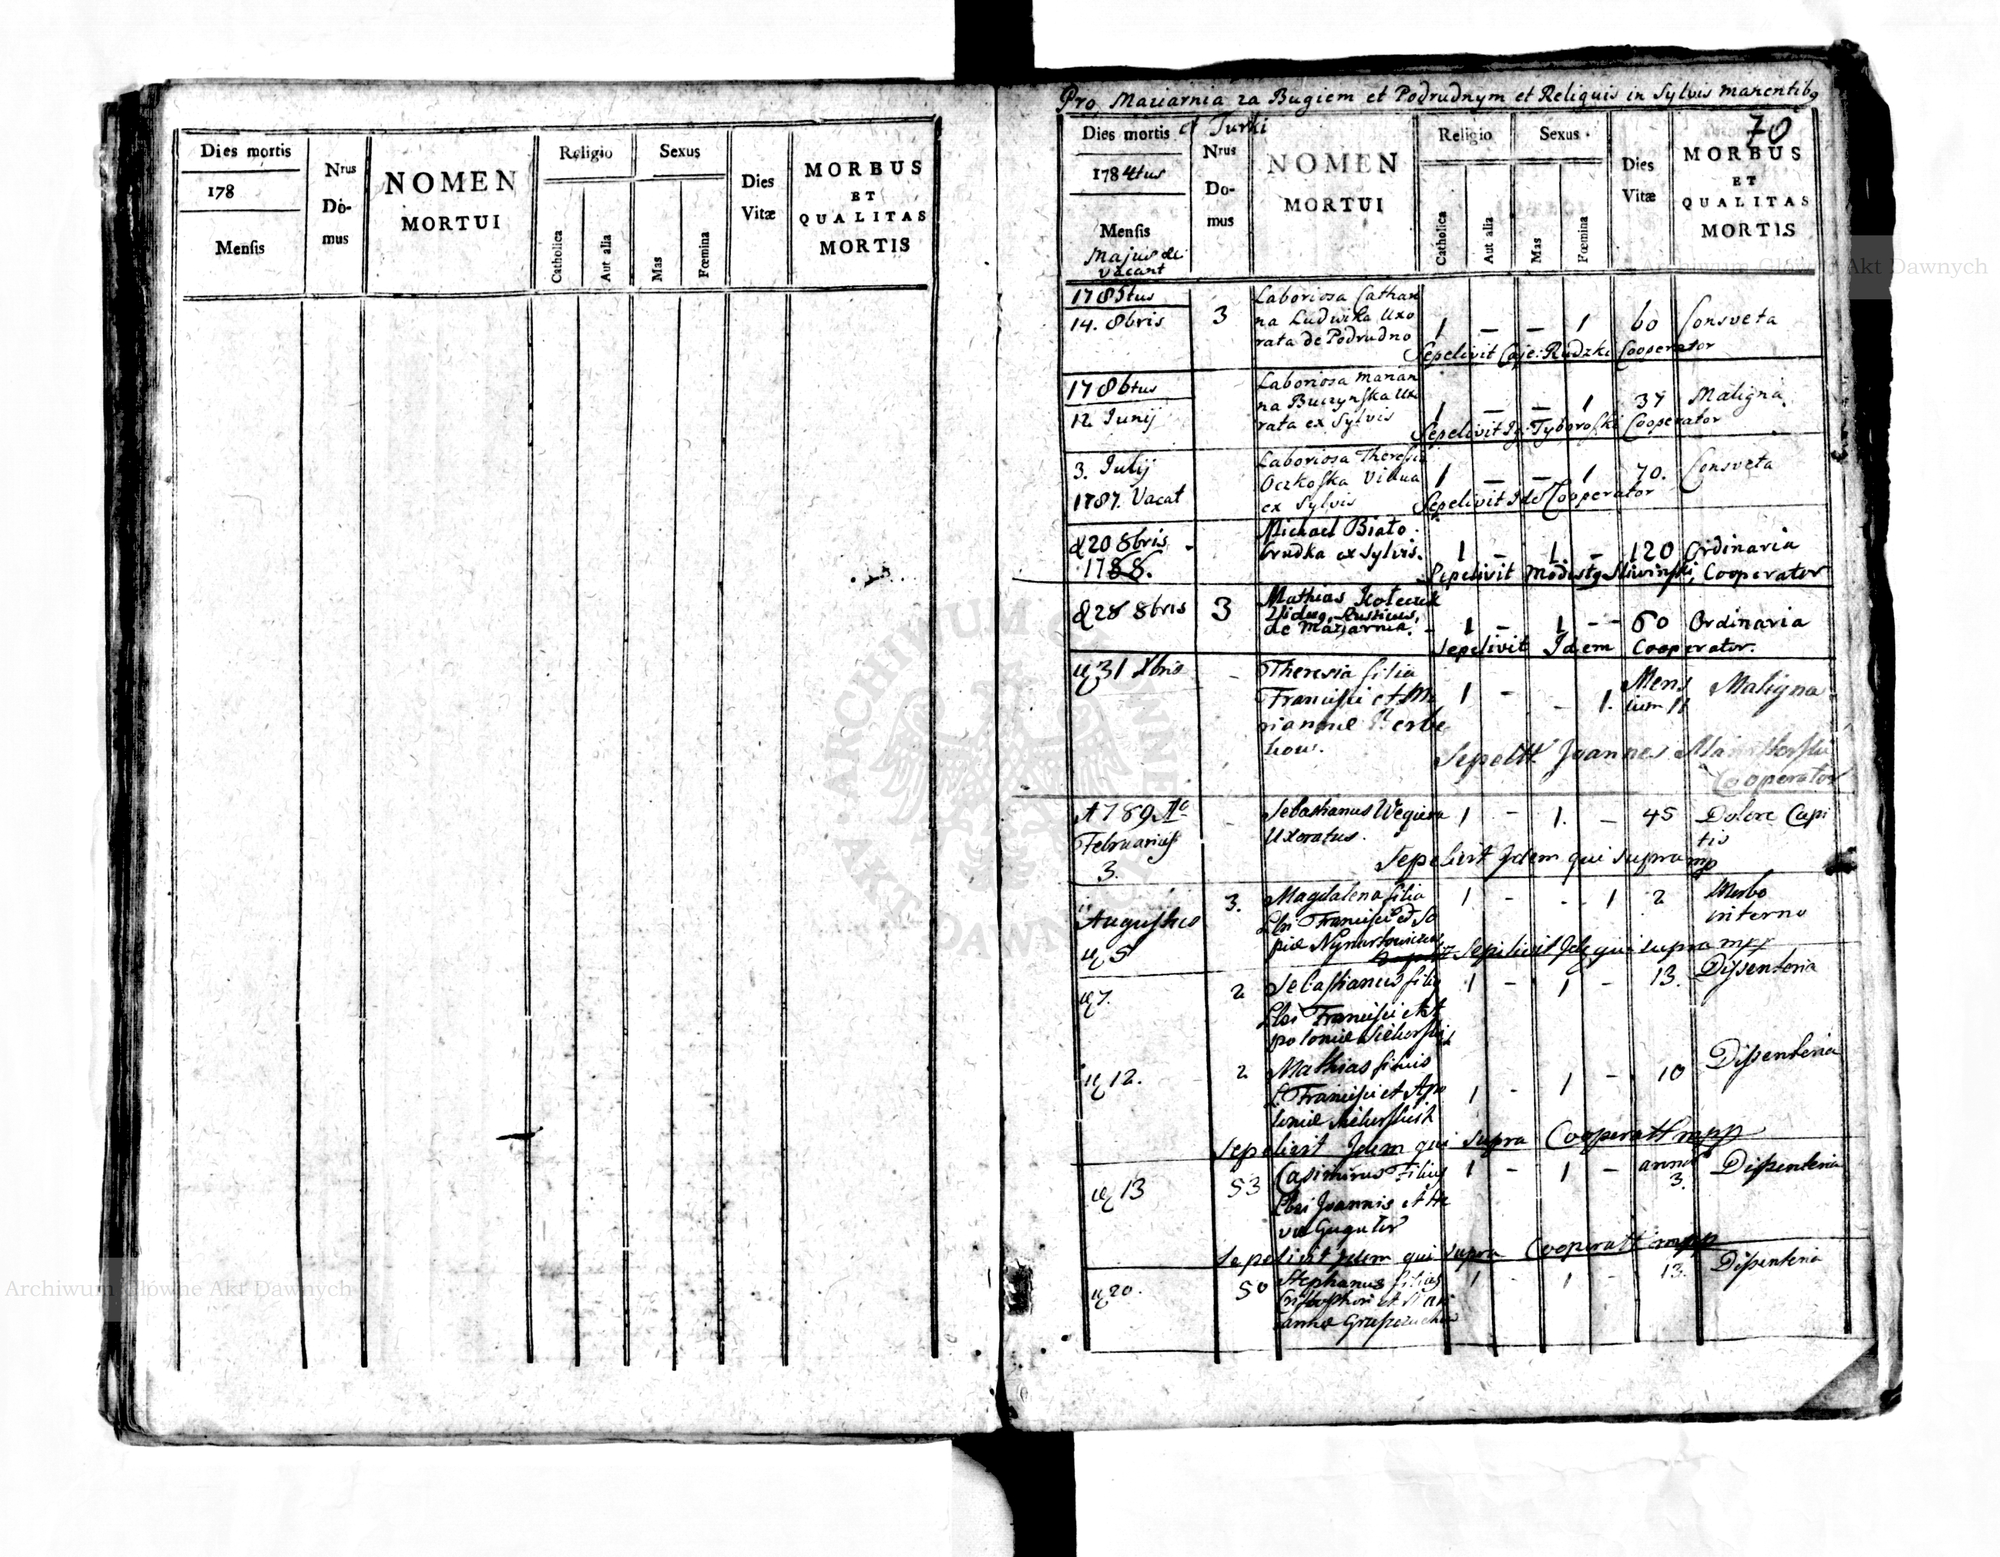 Dies mortis
178
Mensis
Nrus
Do-
mus
NOMEN
MORTUI
Religio
Catholica
Aut alia
Sexus
Mas
Fœmina
Dies
Vitæ
MORBUS
ET
QUALITAS
MORTIS
Pro Maziarnia za Bugiem et Podrudnym et Reliquis in Sylvis manentibq
et Turki
70
Dies mortis
1784tus
Mensis
Majus de
vacant
Nrus
Do-
mus
NOMEN
MORTUI
Religio
Catholica
Aut alia
Sexus
Mas
Fœmina
Dies
Vitæ
MORBUS
ET
QUALITAS
MORTIS
1785tus
14. 8bris 3 Laboriosa Cathari
na Ludwika Uxo
rata de Podrudno 1 — — 1 60 Consveta
Sepelivit Caje: Rudzki Cooperator
1786tus
12. Junij Laboriosa Marian
na Buczynska Uxo
rata ex Sylvis 1 — — 1 37 Maligna
Sepelivit Ig: Tyboroski Cooperator
3. Julij Laboriosa Theresia
Oczkoska Vidua
ex Sylvis 1 — — 1 70. Consveta
1787. Vacat Sepelivit Ide Cooperator
d 20 8bris Michael Biało
brudka ex Sylvis. 1 — 1. — 120 Ordinaria
1788. Sepelivit Modestq Sliwinski, Cooperator
d 28 8bris 3 Mathias
Viduq. Rusticus,
de Maziarnia. 1 — 1 — 60 Ordinaria
Sepelivit Idem Cooperator.
31 Xbris Theresia filia
Francisci et Ma
rianne 1 — — 1. Mens
ium 11 Maligna
Sepelit Joannes
Cooperator
1789 Ao
Februarius
3. Sebastianus Wegiera
Uxoratus. 1 — 1. — 45 Dolore Capi
tis
Sepelivit Idem qui supra mp
Augustus
5 3. Magdalena filia
Francisci et So
1 - - 1 2 Morbo
interno
Sepelivit Ide qui supra mpp
7. 2 Sebastianus filiq
Francisci et A
polonie 1 — 1 — 13. Dissenteria
12. 2 Mathias filius
L. Francisci et Apo
lonie 1 - 1 — 10 Dissenteria
Sepelivit Idem qui supra Cooperatt mpp
13 53 Casimirus Filius
Joannis et He
1 - 1 — anno
3. Dissenteria
Sepelivit Idem qui supra Cooperatt mpp
20. 50 Stephanus filius
Cristophori et Mari
anne 1 - 1 - 13. Dissenteria
ARCHIWUM GŁÓWNE AKT DAWNYCH
Archiwum Główne Akt Dawnych
Archiwum Główne Akt Dawnych